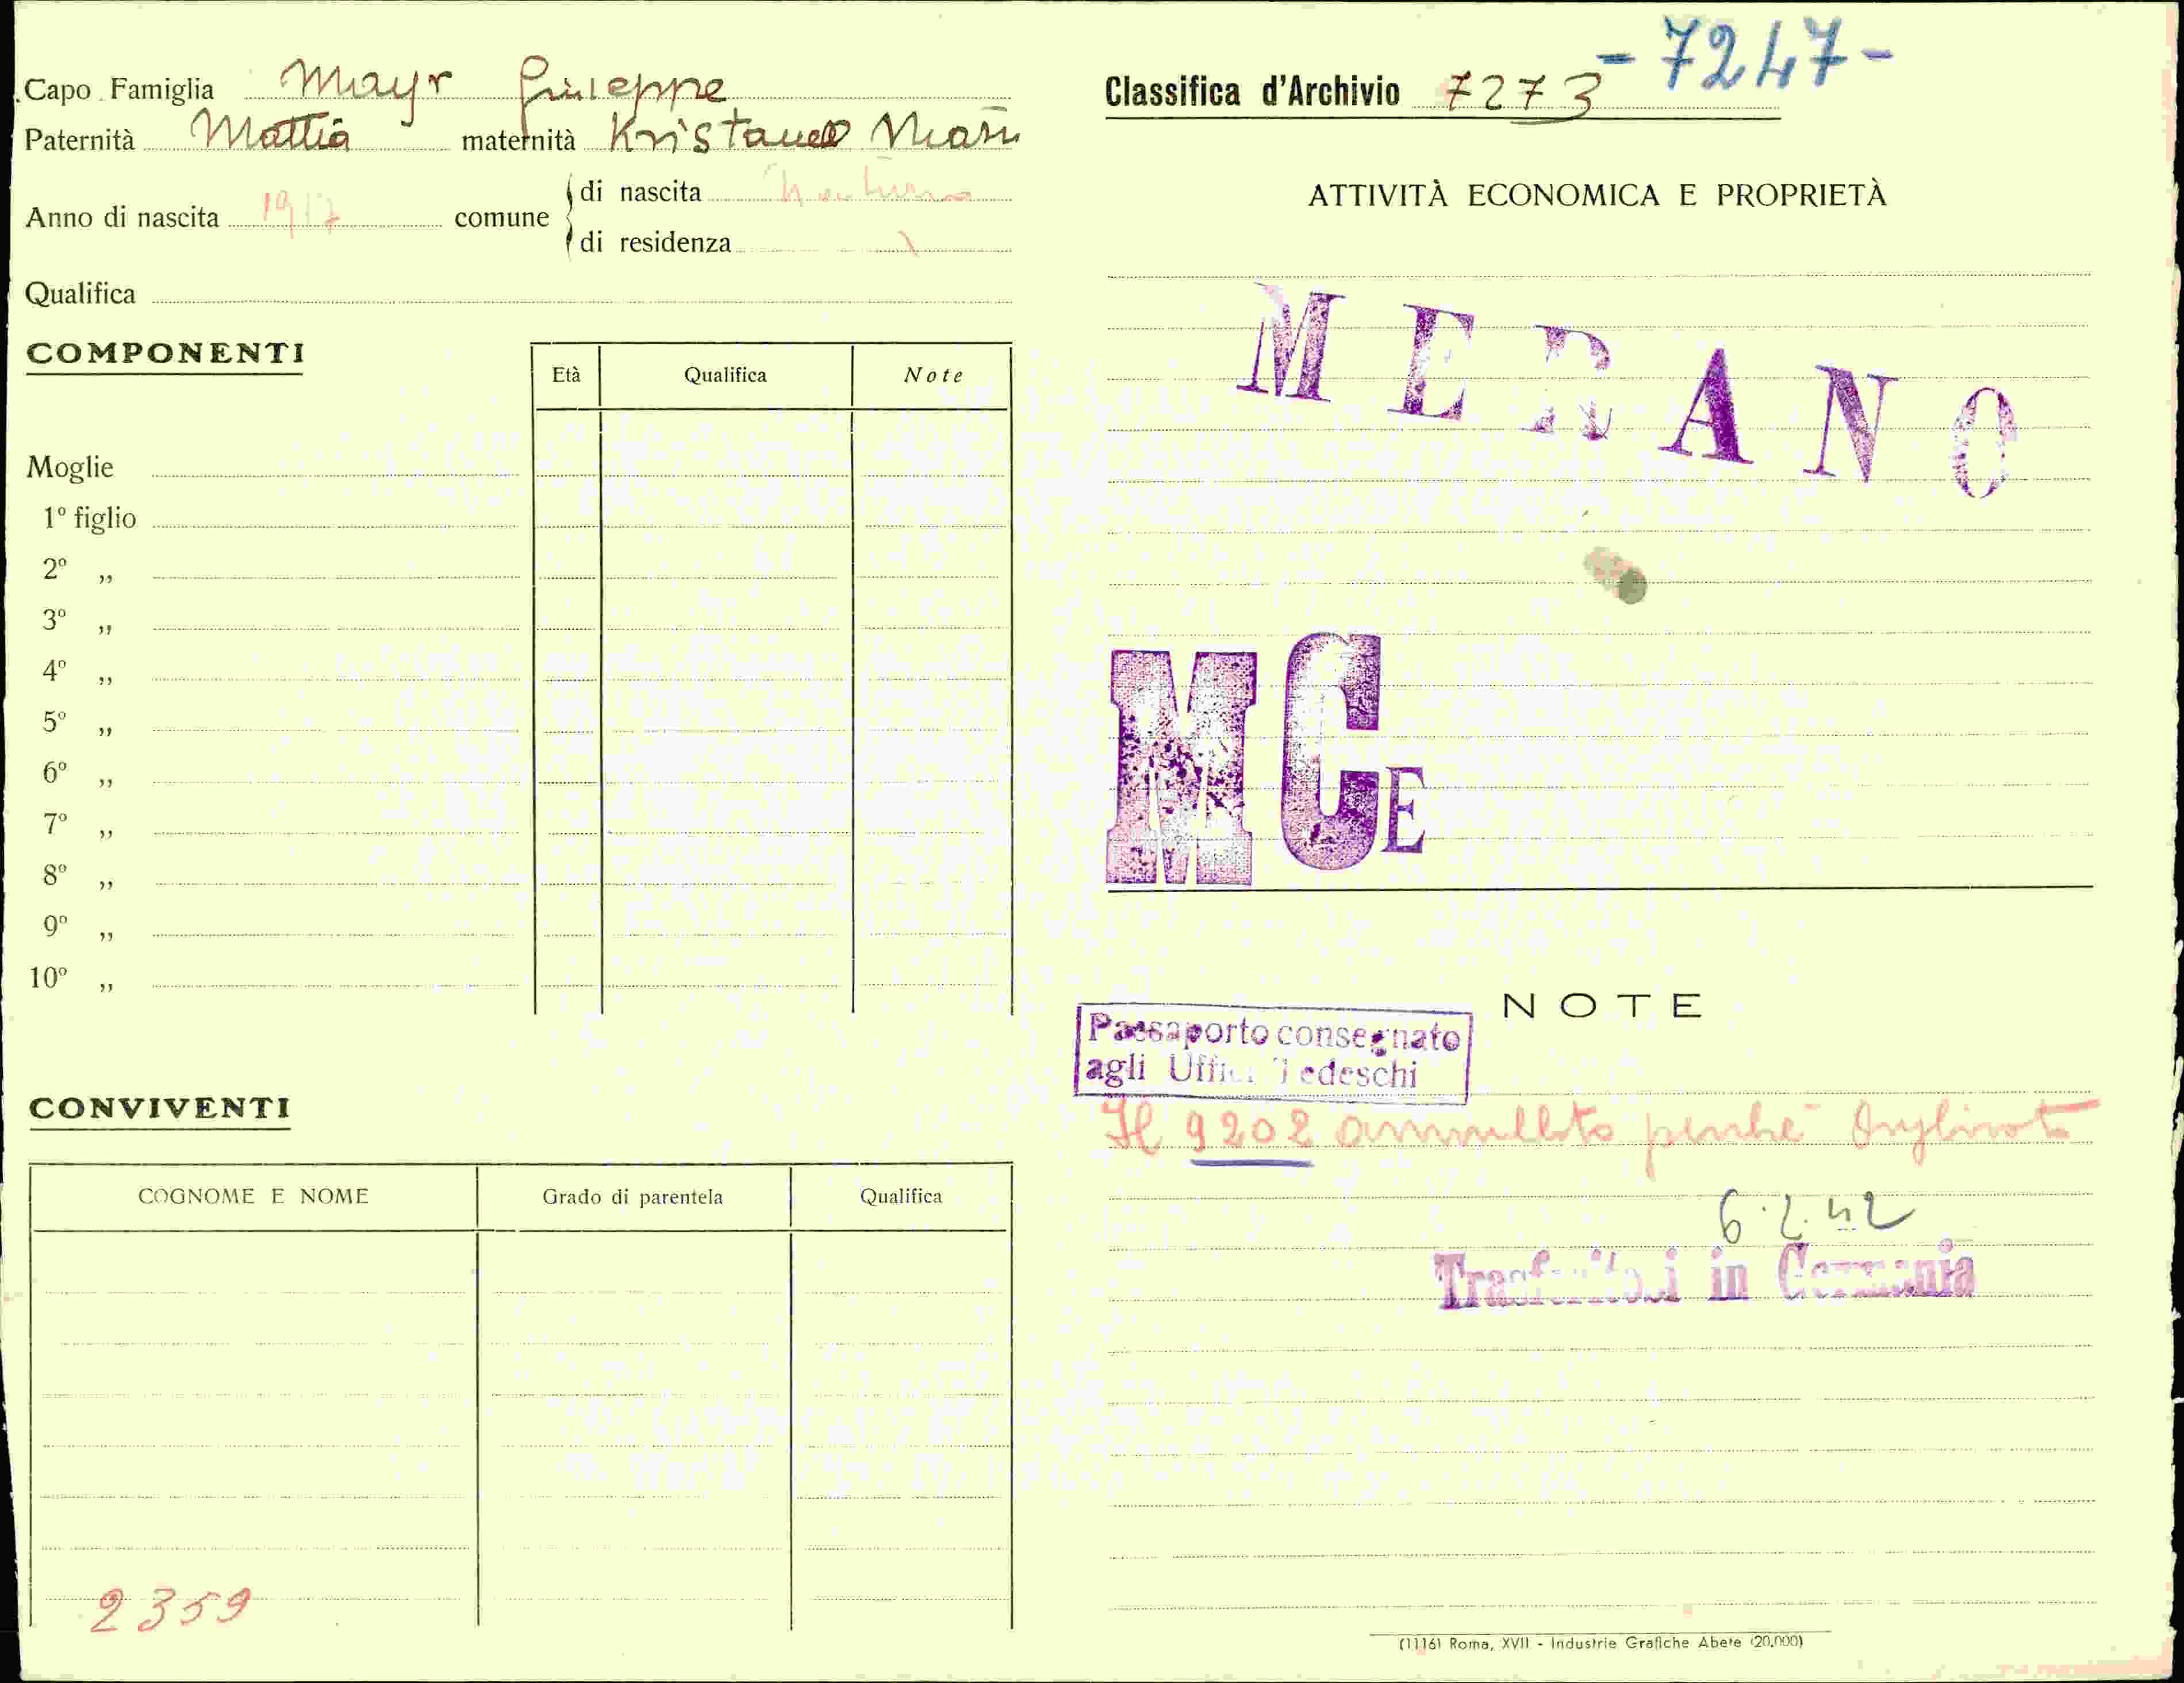 Capo Famiglia Mayr Giuseppe
Paternità Mattia maternità Kristanell Maria
Anno di nascita 1917 comune
di nascita
di residenza
Qualifica
COMPONENTI
Età Qualifica Note
Moglie
1º figlio
2º ,,
3º ,,
4º ,,
5º ,,
6º ,,
7º ,,
8º ,,
9º ,,
10º ,,
CONVIVENTI
COGNOME E NOME Grado di parentela Qualifica
2359
-7247-
Classifica d'Archivio 7273
ATTIVITÀ ECONOMICA E PROPRIETÀ
MERANO
MCE
NOTE
Passaporto consegnato
agli Uffici Tedeschi
Il 9202 annullato perchè
6.2.42
Trasferitosi in Germania
(1116) Roma, XVII - Industrie Grafiche Abete (20.000)